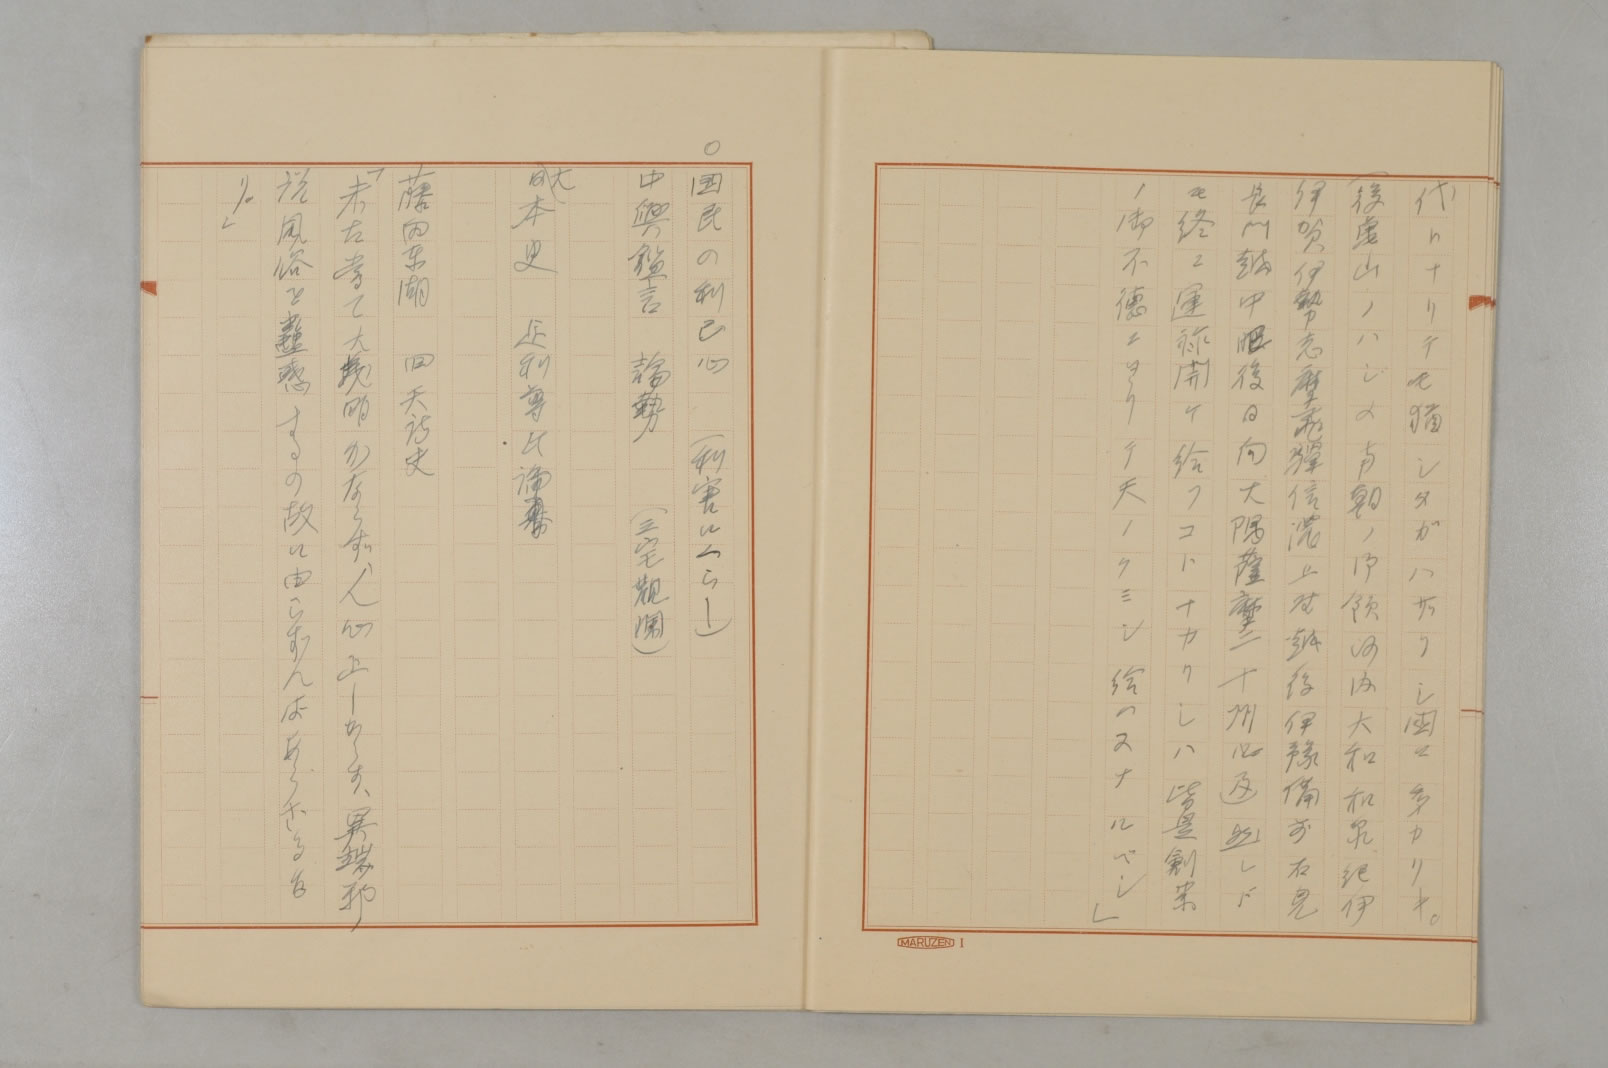 代ニナリテモ猶シタガハザリシ国々多カリキ。
(後霊山ノハジメ南朝ノ御領河内大和和泉紀伊
伊賀伊勢志摩飛騨信濃上野越後伊豫備前石見
長門越中肥後日向大隅薩摩二十州ニ及 然レド
モ終ニ運祚開ケ給フコトナカリシハ皆是創業
ノ御不徳ニヨリテ天ノクミシ給ハヌナルベシ」
MARUZEN 1
○国民の利己心 (利害にくらし)
中興鑑言 論勢 (三宅観瀾)
大日本史 足利尊氏論賛
藤田東湖 回天詩史
「未だ嘗て大義明かならず、人心正しからず、異端邪
説風俗を蠱惑するの故に由らずんばあらざるな
り。」